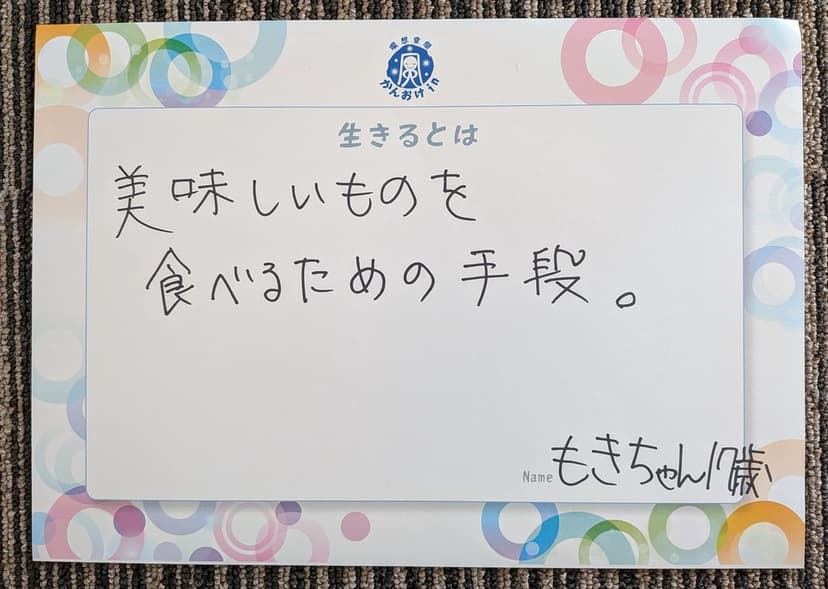 瞑想空間
かんおけin
生きるとは
美味しいものを
食べるための手段。
Name もきちゃん17歳